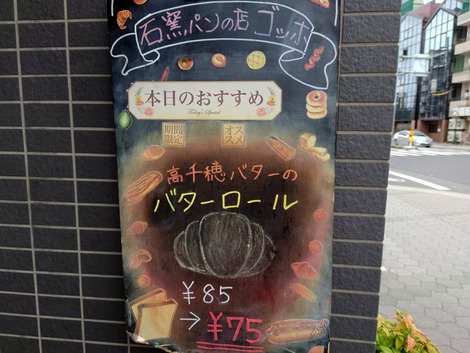 石窯パンの店 ゴッホ
本日のおすすめ
Today's Special
期間限定
オススメ
高千穂バターの
バターロール
¥85
→ ¥75